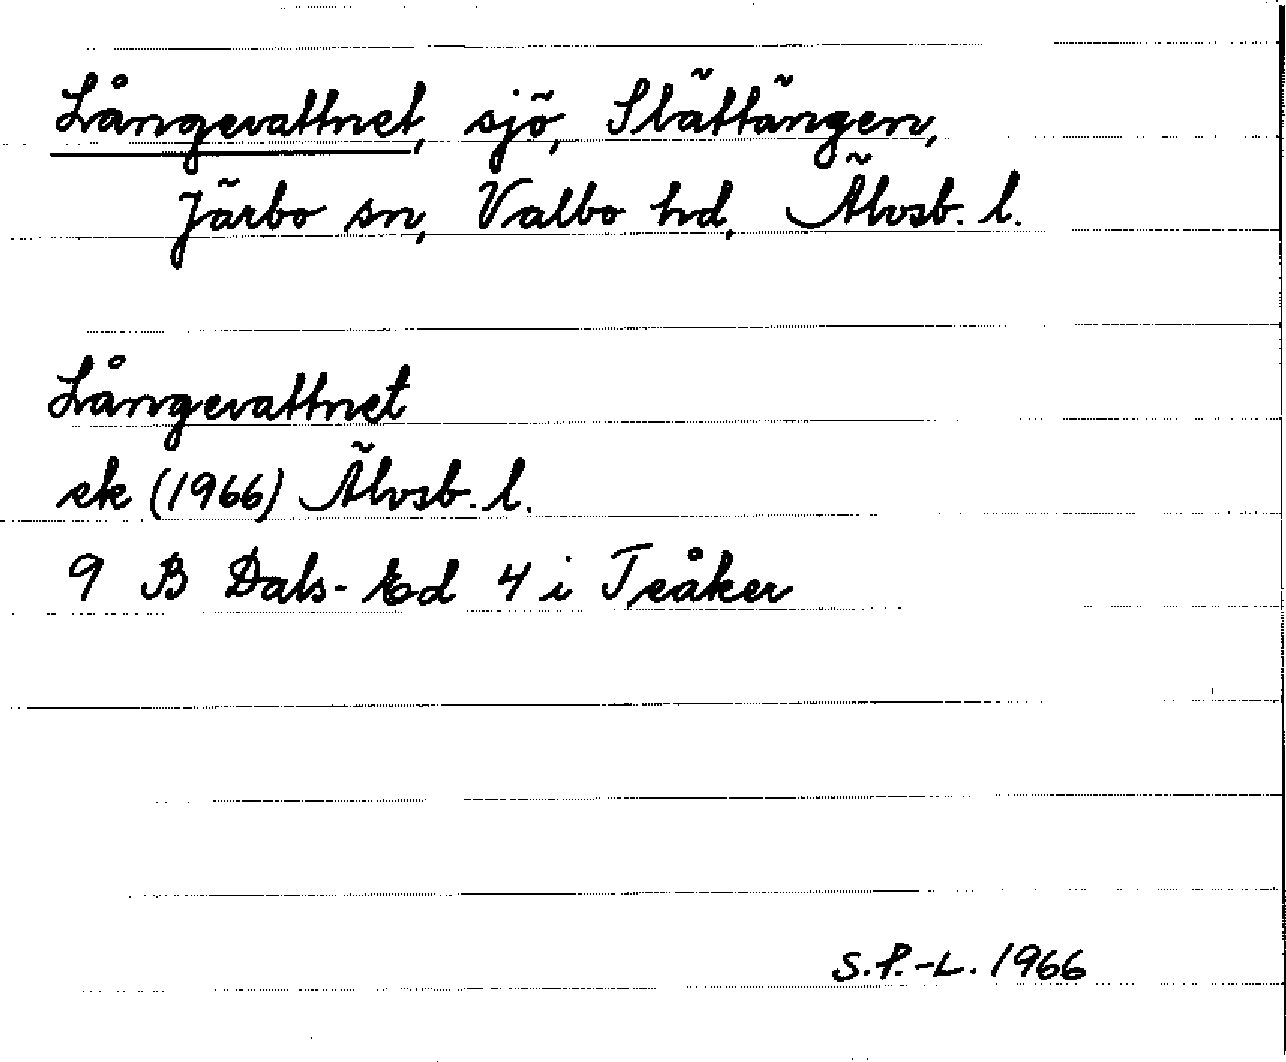 Långevattnet, sjö, Slättängen,
Järbo sn, Valbo hd, Älvsb. l.
Långevattnet
ek (1966) Älvsb. l.
9 B Dals-Ed 4 i Teåker
S.P.-L. 1966